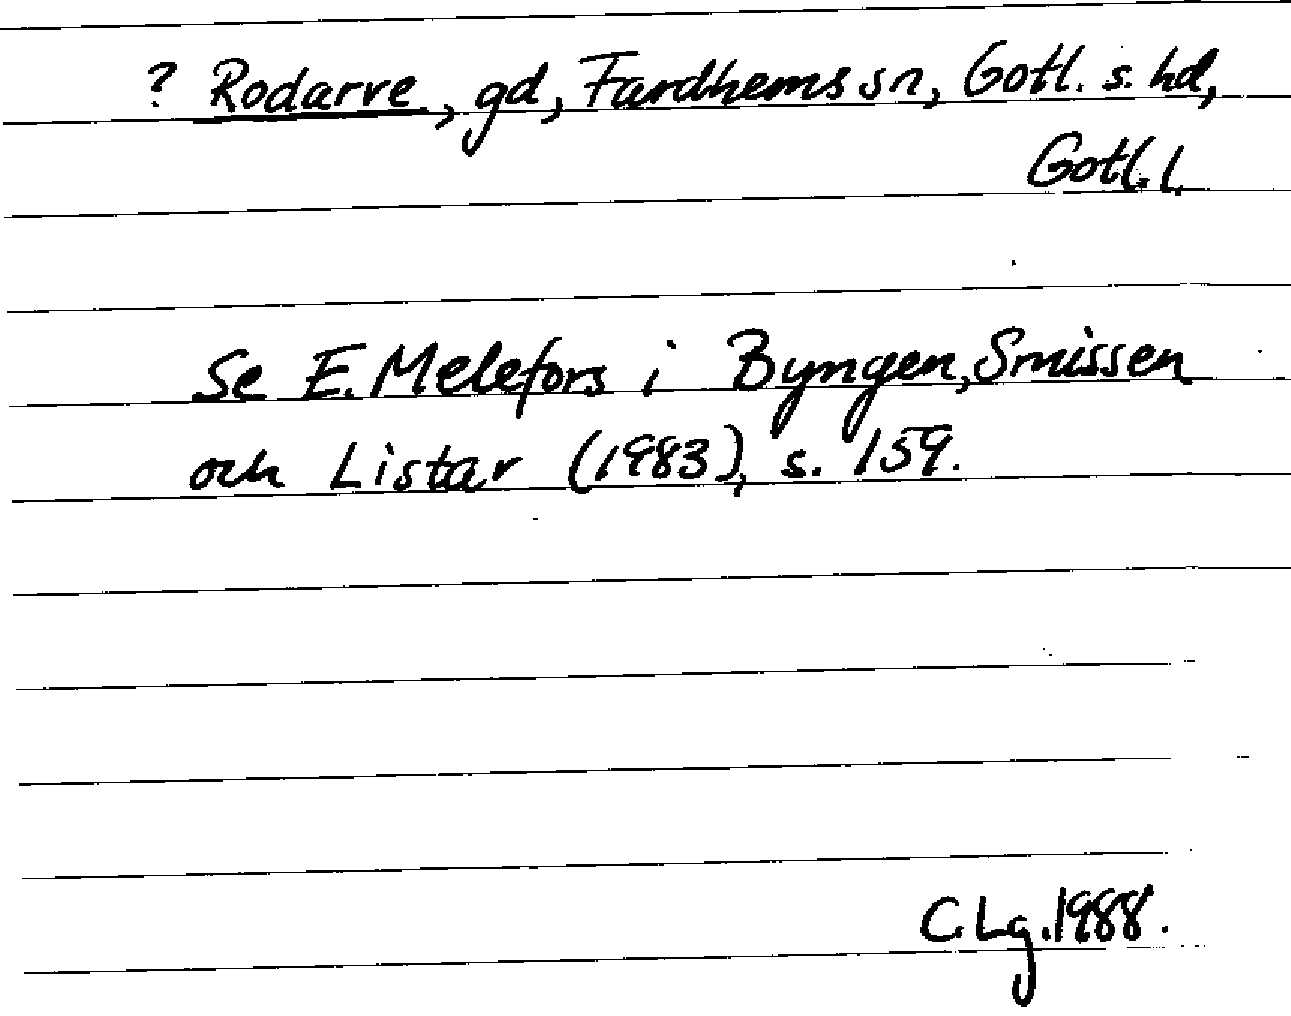 ? Rodarve, gd, Fardhems sn, Gotl. s. hd,
Gotl. l.
Se E. Melefors i Byngen, Smissen
och Listar (1983), s. 159.
C. Lg. 1988.